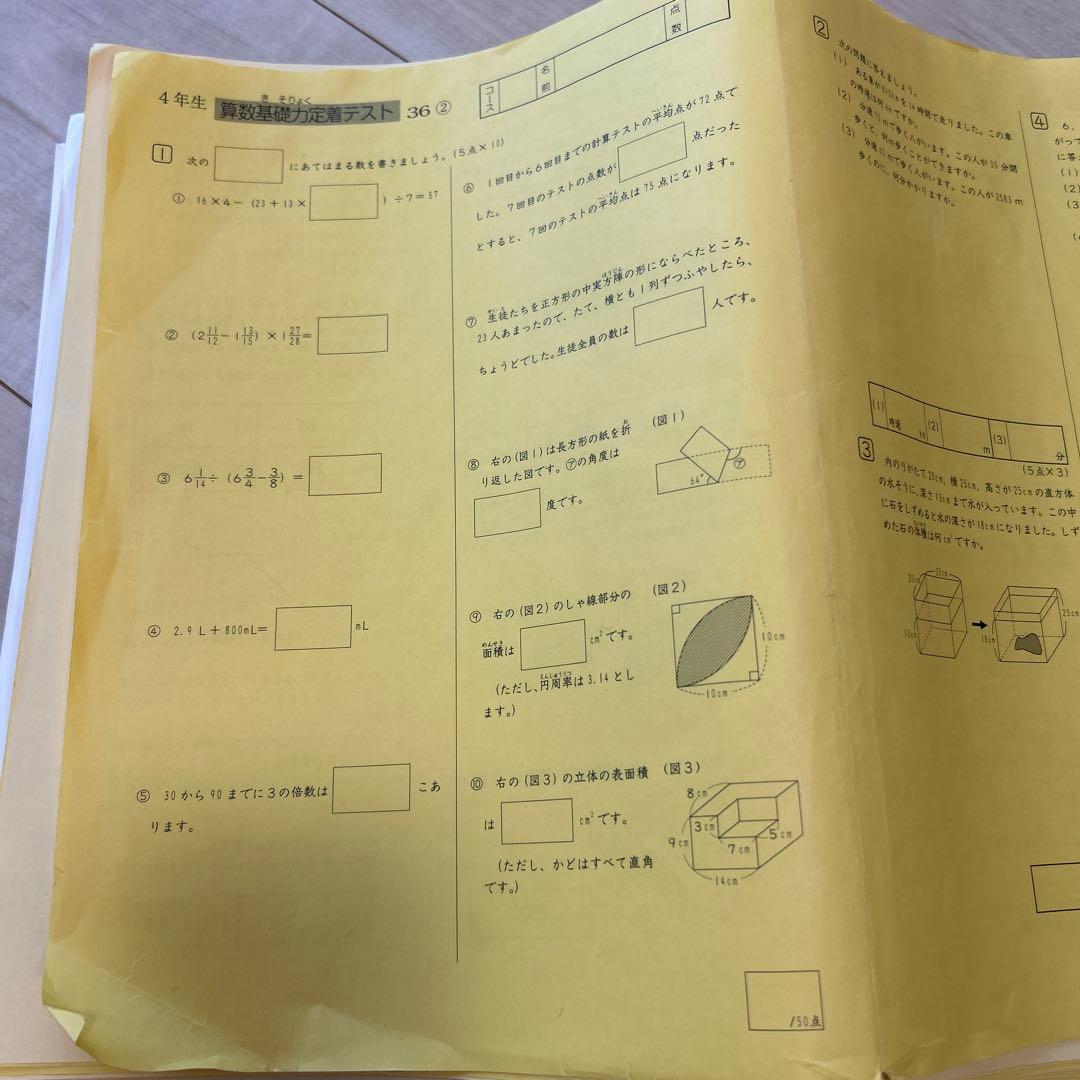 4年生 算数基礎力定着テスト 36②
きそりょく
コース
名前
点数
1 次の にあてはまる数を書きましょう。(5点×10)
① 16×4－(23＋13× )÷7＝57
② (2 11/12－1 13/15)×1 27/28＝
③ 6 1/14÷(6 3/4－3/8)＝
④ 2.9L＋800mL＝ mL
⑤ 30から90までに3の倍数は こあ
ります。
⑥ 1回目から6回目までの計算テストの平均点が72点で
した。7回目のテストの点数が 点だった
とすると、7回のテストの平均点は75点になります。
⑦ 生徒たちを正方形の中実方陣の形にならべたところ、
23人あまったので、たて、横とも1列ずつふやしたら、
ちょうどでした。生徒全員の数は 人です。
⑧ 右の(図1)は長方形の紙を折
り返した図です。㋐の角度は
度です。
(図1)
64°
㋐
⑨ 右の(図2)のしゃ線部分の
面積は cm²です。
(ただし、円周率は3.14とし
ます。)
(図2)
10cm
10cm
⑩ 右の(図3)の立体の表面積
は cm²です。
(ただし、かどはすべて直角
です。)
(図3)
8cm
3cm
5cm
9cm
7cm
14cm
/50点
2 次の問題に答えましょう。
(1) ある車が
を14時間で走りました。この車
の時速は何kmですか。
(2) 分速
mで歩く人がいます。この人が35分間
歩くと、何m歩くことができますか。
(3) 分速
mで歩く人がいます。この人が2583m
歩くのに、何分かかりますか。
(1) 時速 km (2) m (3) 分
(5点×3)
3 内のりがたて20cm、横25cm、高さが25cmの直方体
の水そうに、深さ13cmまで水が入っています。この中
に石をしずめると水の深さが18cmになりました。しず
めた石の体積は何cm³ですか。
20cm
25cm
13cm
18cm
25cm
4 6.
がって
に答
(1)
(2)
(3)